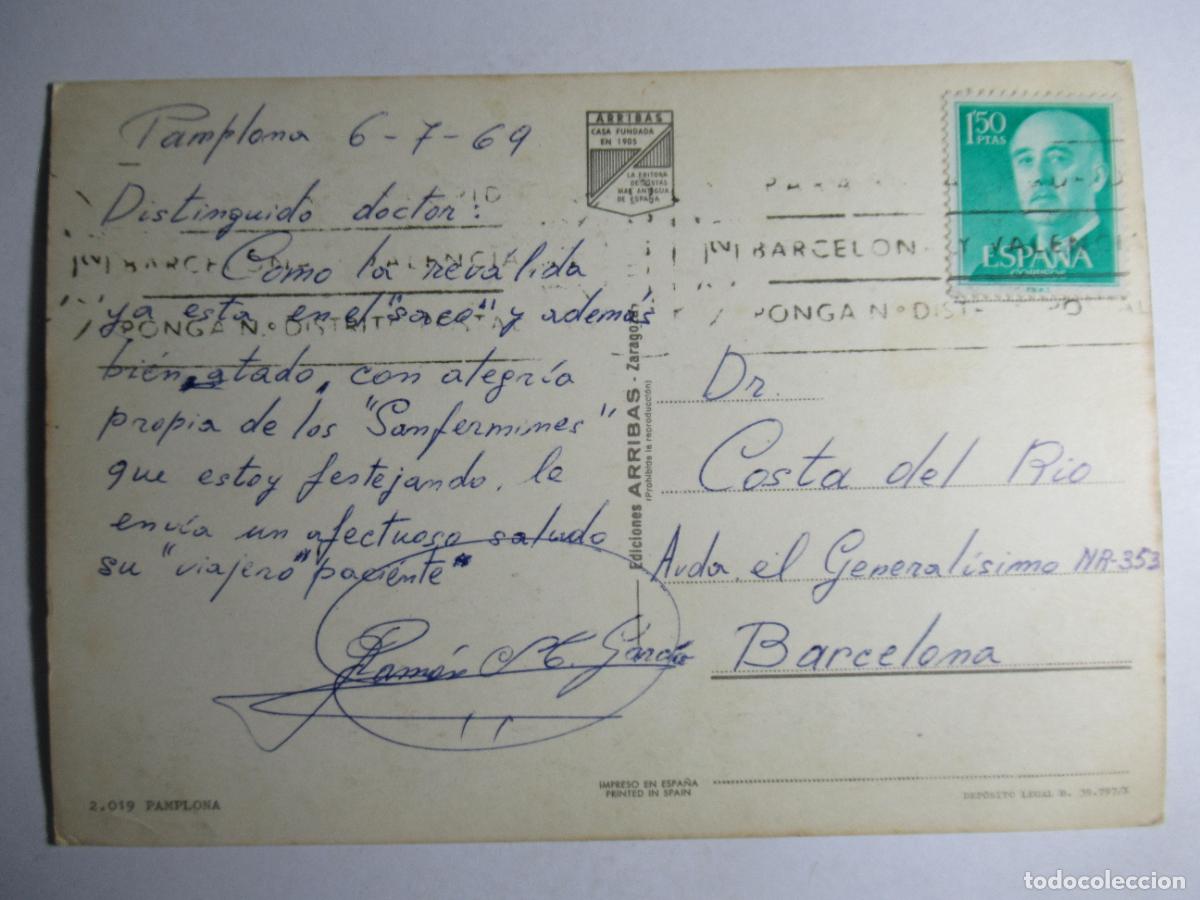 Pamplona 6-7-69
Distinguido doctor:
Como la revalida
ya esta en el "saco" y además
bién atado, con alegría
propia de los "Sanfermines"
que estoy festejando, le
envía un afectuoso saludo
su "viajero" paciente"
Ramón M. García
2.019 PAMPLONA
ARRIBAS
CASA FUNDADA
EN 1905
LA EDITORA
DE POSTAS
MAS ANTIGUA
DE ESPAÑA
Ediciones ARRIBAS - Zaragoza
(Prohibida la reproducción)
IMPRESO EN ESPAÑA
PRINTED IN SPAIN
1'50
PTAS
ESPAÑA
CORREOS
PARA
BARCELONA Y VALENCIA
PONGA N.º DISTRITO POSTAL
BARCELONA VALENCIA
PONGA N.º DISTRITO POSTAL
Dr.
Costa del Rio
Avda. el Generalísimo NR-353
Barcelona
DEPÓSITO LEGAL B. 39.797/X
todocoleccion